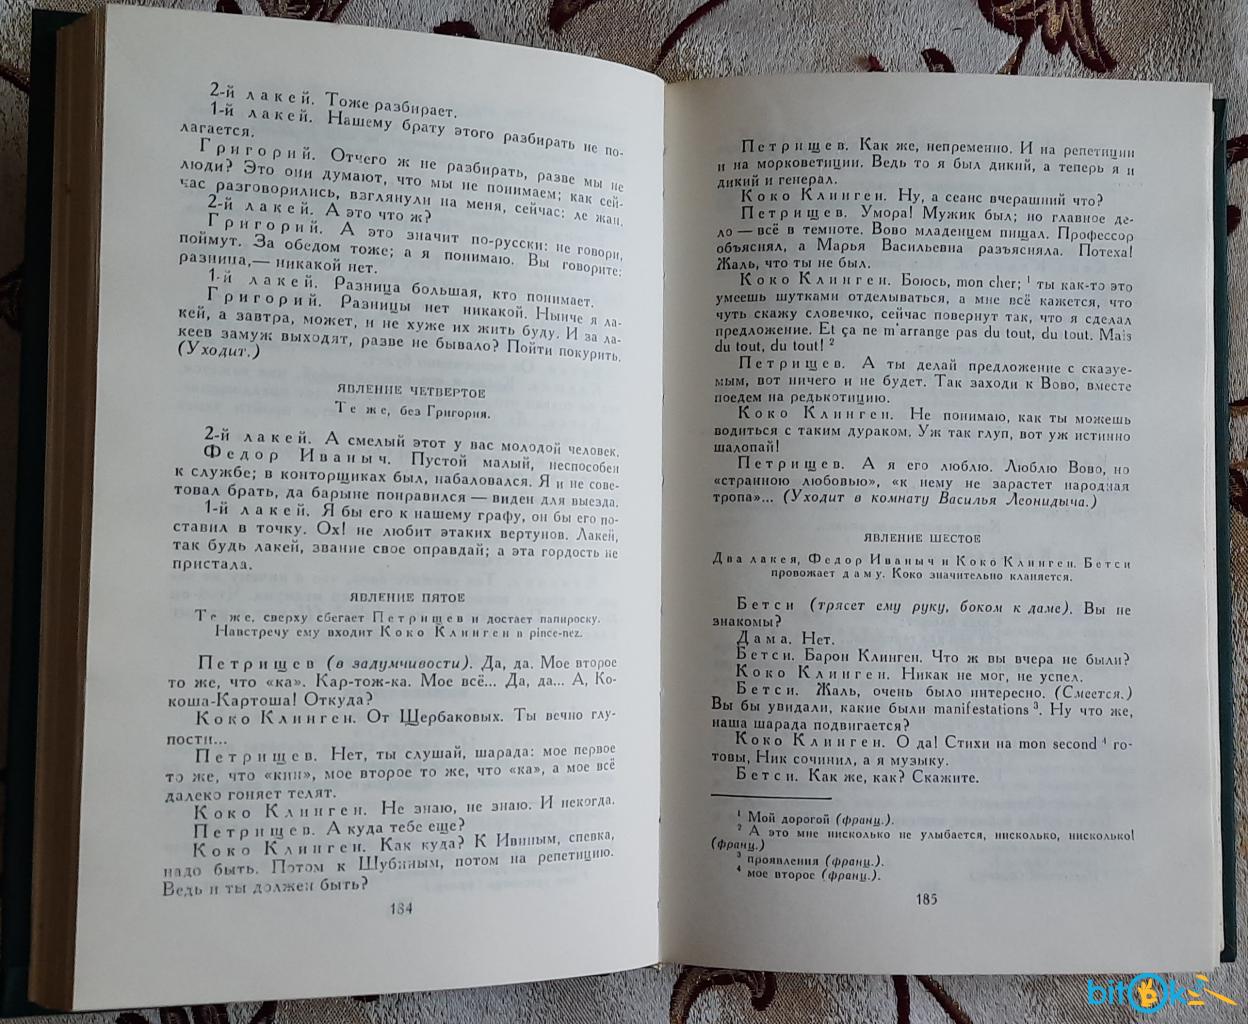 2-й лакей. Тоже разбирает.
1-й лакей. Нашему брату этого разбирать не по-
лагается.
Григорий. Отчего ж не разбирать, разве мы не
люди? Это они думают, что мы не понимаем; как сей-
час разговорились, взглянули на меня, сейчас: ле жан.
2-й лакей. А это что ж?
Григорий. А это значит по-русски: не говори,
поймут. За обедом тоже; а я понимаю. Вы говорите:
разница,— никакой нет.
1-й лакей. Разница большая, кто понимает.
Григорий. Разницы нет никакой. Нынче я ла-
кей, а завтра, может, и не хуже их жить буду. И за ла-
кеев замуж выходят, разве не бывало? Пойти покурить.
(Уходит.)
ЯВЛЕНИЕ ЧЕТВЕРТОЕ
Те же, без Григория.
2-й лакей. А смелый этот у вас молодой человек.
Федор Иваныч. Пустой малый, неспособен
к службе; в конторщиках был, набаловался. Я и не сове-
товал брать, да барыне понравился — виден для выезда.
1-й лакей. Я бы его к нашему графу, он бы его по-
ставил в точку. Ох! не любит этаких вертунов. Лакей,
так будь лакей, звание свое оправдай; а эта гордость не
пристала.
ЯВЛЕНИЕ ПЯТОЕ
Те же, сверху сбегает Петрищев и достает папироску.
Навстречу ему входит Коко Клинген в pince-nez.
Петрищев (в задумчивости). Да, да. Мое второе
то же, что «ка». Кар-тож-ка. Мое всё... Да, да... А, Ко-
коша-Картоша! Откуда?
Коко Клинген. От Щербаковых. Ты вечно глу-
пости...
Петрищев. Нет, ты слушай, шарада: мое первое
то же, что «кин», мое второе то же, что «ка», а мое всё
далеко гоняет телят.
Коко Клинген. Не знаю, не знаю. И некогда.
Петрищев. А куда тебе еще?
Коко Клинген. Как куда? К Ивиным, спевка,
надо быть. Потом к Шубиным, потом на репетицию.
Ведь и ты должен быть?
184
Петрищев. Как же, непременно. И на репетиции
и на морковетиции. Ведь то я был дикий, а теперь я и
дикий и генерал.
Коко Клинген. Ну, а сеанс вчерашний что?
Петрищев. Умора! Мужик был; но главное де-
ло — всё в темноте. Вово младенцем пищал. Профессор
объяснял, а Марья Васильевна разъясняла. Потеха!
Жаль, что ты не был.
Коко Клинген. Боюсь, mon cher; 1 ты как-то это
умеешь шутками отделываться, а мне всё кажется, что
чуть скажу словечко, сейчас повернут так, что я сделал
предложение. Et ça ne m'arrange pas du tout, du tout. Mais
du tout, du tout! 2
Петрищев. А ты делай предложение с сказуе-
мым, вот ничего и не будет. Так заходи к Вово, вместе
поедем на редькотицию.
Коко Клинген. Не понимаю, как ты можешь
водиться с таким дураком. Уж так глуп, вот уж истинно
шалопай!
Петрищев. А я его люблю. Люблю Вово, но
«странною любовью», «к нему не зарастет народная
тропа»... (Уходит в комнату Василья Леонидыча.)
ЯВЛЕНИЕ ШЕСТОЕ
Два лакея, Федор Иваныч и Коко Клинген. Бетси
провожает даму. Коко значительно кланяется.
Бетси (трясет ему руку, боком к даме). Вы не
знакомы?
Дама. Нет.
Бетси. Барон Клинген. Что ж вы вчера не были?
Коко Клинген. Никак не мог, не успел.
Бетси. Жаль, очень было интересно. (Смеется.)
Вы бы увидали, какие были manifestations 3. Ну что же,
наша шарада подвигается?
Коко Клинген. О да! Стихи на mon second 4 го-
товы, Ник сочинил, а я музыку.
Бетси. Как же, как? Скажите.
1 Мой дорогой (франц.).
2 А это мне нисколько не улыбается, нисколько, нисколько!
(франц.)
3 проявления (франц.).
4 мое второе (франц.).
185